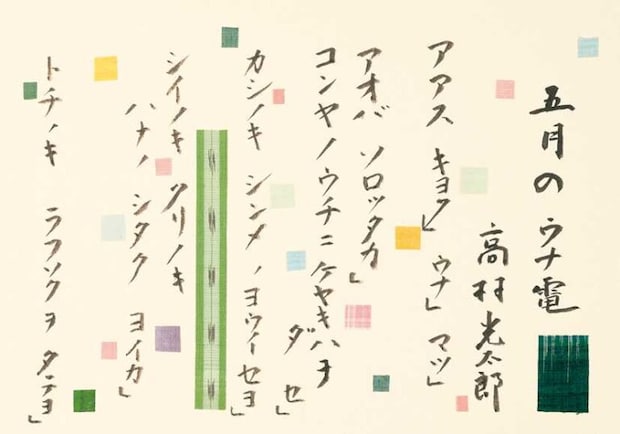 五月のウナ電
高村光太郎
アアス キヨク」 ウナ」 マツ」
アオバ ソロッタカ」
コンヤノウチニ ケヤキハヲ
ダ セ
カシノキ シンメノヨウイセヨ」
シイノキ クリノキ
ハナノ シタク ヨイカ」
トチノキ ラフソクヲ タテヨ」